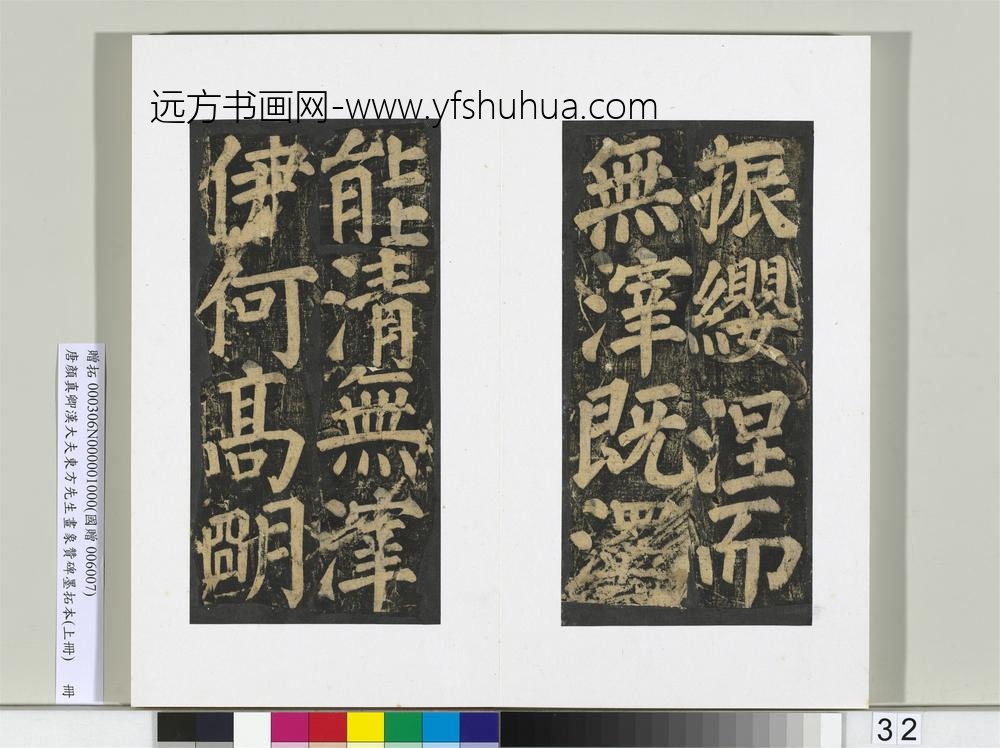 远方书画网-www.yfshuhua.com
振纓涅而
無滓既濁
能清無滓
伊何高朙
贈拓 000306N000001000(國贈 006007)
唐顏真卿漢大夫東方先生畫象贊碑墨拓本(上冊) 冊
32